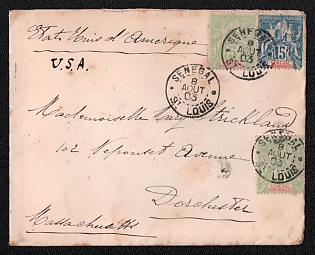 Etats Unis d'Amérique
U.S.A.
SENEGAL
8
AOUT
03
ST LOUIS
SENEGAL
8
AOUT
03
ST LOUIS
15
Mademoiselle Mary Strickland
102 Neponset Avenue
SENEGAL
8
AOUT
03
ST LOUIS
Dorchester
Massachusetts